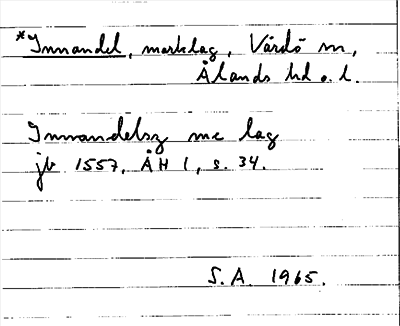 *Innandel, marklag, Vårdö sn,
Ålands hd o. l.
Innandelsz me lag
jb 1557, ÅH 1, s. 34.
S.A. 1965.